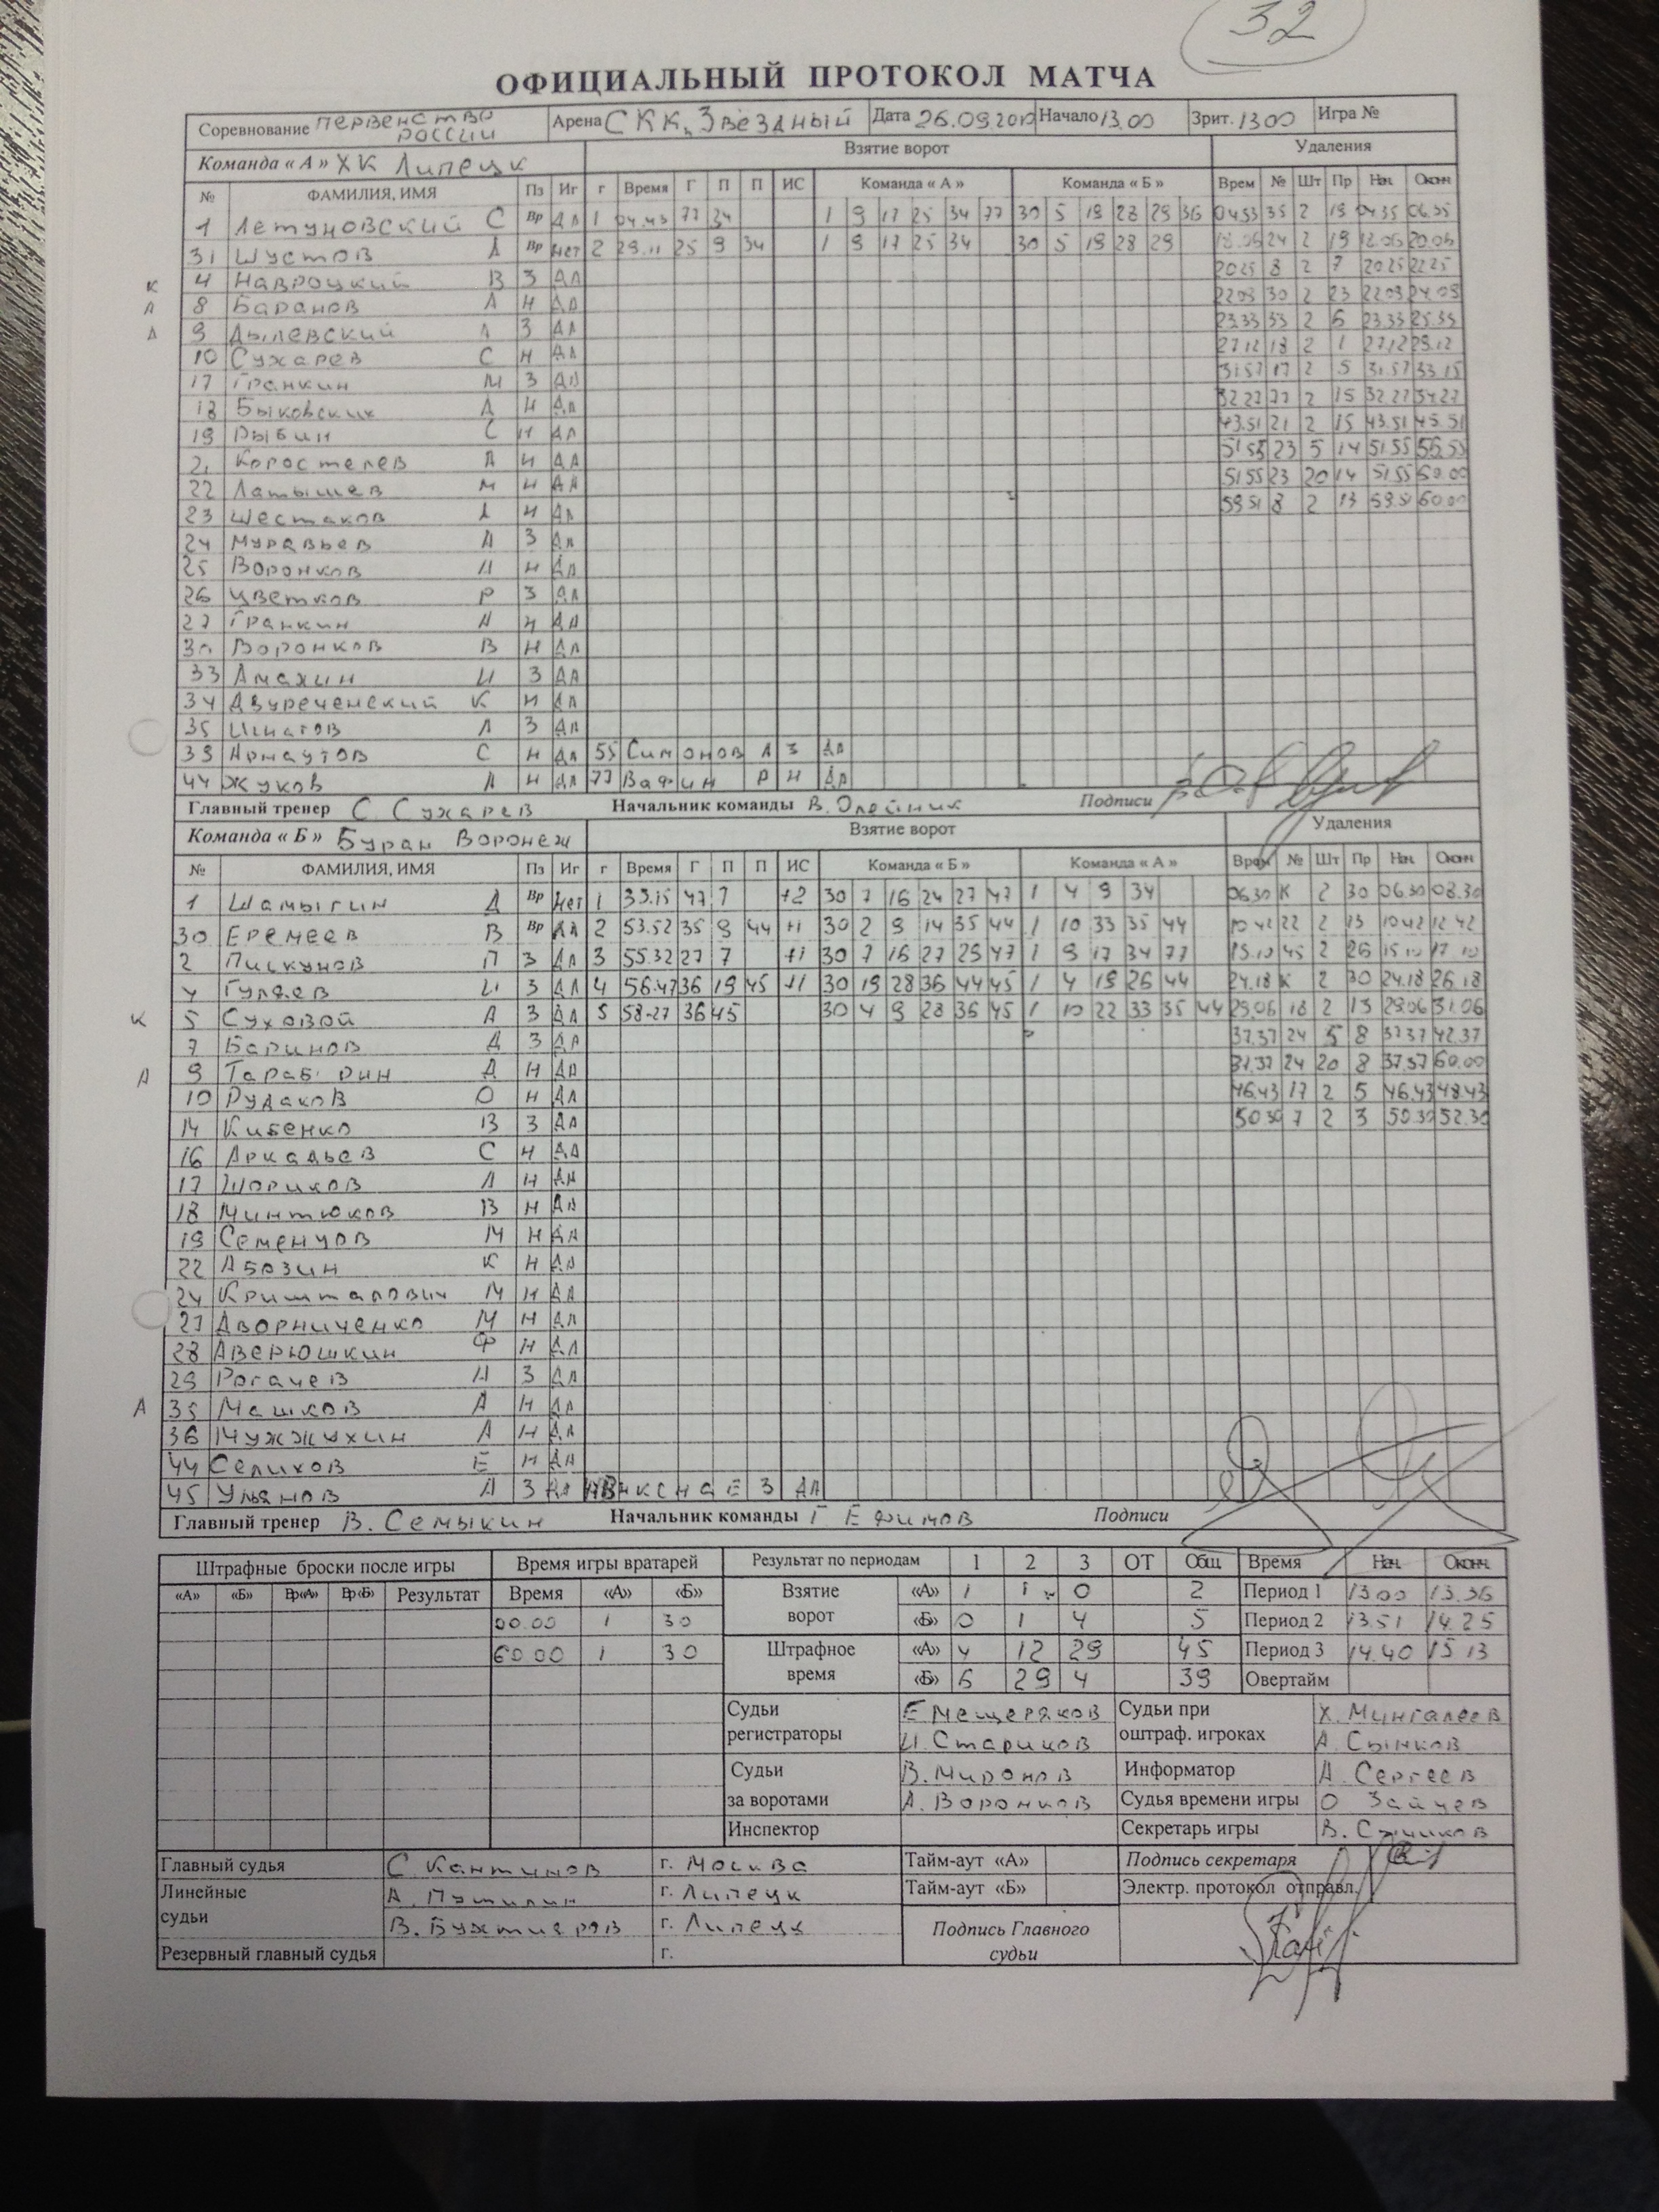 32
ОФИЦИАЛЬНЫЙ ПРОТОКОЛ МАТЧА
Соревнование ПЕРВЕНСТВО РОССИИ Арена СКК "Звездный Дата 26.09.2010 Начало 13.00 Зрит. 1300 Игра №
Команда « А » ХК Липецк Взятие ворот Удаления
№ ФАМИЛИЯ, ИМЯ Пз Иг г Время Г П П ИС Команда « А » Команда « Б » Врем № Шт Пр Нач. Оконч.
1 Летуновский С Вр Да 1 04.43 77 34 1 9 17 25 34 77 30 5 19 28 29 36 04.35 35 2 19 04.35 06.35
31 Шустов А Вр Нет 2 29.11 25 9 34 1 9 17 25 34 30 5 19 28 29 24 2 19
К 4 Навроцкий В З Да 20.25 8 2 7 20.25 22.25
А 8 Баранов А Н Да 22.09 30 2 23 22.09 24.09
А 9 Дылевский А З Да 23.33 33 2 6 23.33 25.33
10 Сухарев С Н Да 27.12 18 2 1 27.12 29.12
17 Гранкин М З Да 31.57 17 2 5 31.57 33.15
18 Быковских Д Н Да 32.27 77 2 15 32.27 34.27
19 Рыбин С Н Да 43.51 21 2 15 43.51 45.51
21 Коростелев А Н Да 51.55 23 5 14 51.55 56.55
22 Латышев М Н Да 51.55 23 20 14 51.55 60.00
23 Шестаков А Н Да 59.51 8 2 13 59.51 60.00
24 Муравьев А З Да
25 Воронков И Н Да
26 Цветков Р З Да
27 Гранкин Н Да
30 Воронков В Н Да
33 Амахин И З Да
34 Двуреченский К Н Да
35 Игнатов А З Да
39 Арнаутов С Н Да 55 Симонов А З Да
44 Жуков А Н Да 77 Вафин Р Н Да
Главный тренер С. Сухарев Начальник команды В. Олейник Подписи
Команда « Б » Буран Воронеж Взятие ворот Удаления
№ ФАМИЛИЯ, ИМЯ Пз Иг г Время Г П П ИС Команда « Б » Команда « А » Врем № Шт Пр Нач. Оконч.
1 Шамыгин Д Вр Нет 1 33.15 47 7 +2 30 7 16 24 27 47 1 4 9 34 06.30 К 2 30 06.30 08.30
30 Еремеев В Вр Да 2 53.52 35 9 44 +1 30 2 9 14 35 44 1 10 33 35 44 10.42 22 2 13 10.42 12.42
2 Пискунов П З Да 3 55.32 27 7 +1 30 7 16 27 29 47 1 9 17 34 77 15.10 45 2 26 15.10 17.10
4 Гуляев И З Да 4 56.47 36 19 45 +1 30 19 28 36 44 45 1 4 19 26 44 24.18 К 2 30 24.18 26.18
К 5 Суховой А З Да 5 58-27 36 45 30 4 9 28 36 45 1 10 22 33 35 44 29.06 18 2 13 29.06 31.06
7 Баринов Д З Да 37.37 24 5 8 37.37 42.37
А 9 Тарабрин Д Н Да 37.37 24 20 8 37.37 60.00
10 Рудаков О Н Да 46.43 17 2 5 46.43 48.43
14 Кибенко В З Да 50.30 7 2 3 50.30 52.30
16 Аркадьев С Н Да
17 Шориков А Н Да
18 Минтюков В Н Да
19 Семенцов М Н Да
22 Абозин К Н Да
24 Кришталович М Н Да
27 Дворниченко М Н Да
28 Аверюшкин Ф Н Да
29 Рогачев И З Да
А 35 Машков А Н Да
36 Мужжухин А Н Да
44 Селихов Е Н Да
45 Ульянов А З Да Е З Да
Главный тренер В. Семыкин Начальник команды Г Ефимов Подписи
Штрафные броски после игры Время игры вратарей Результат по периодам 1 2 3 ОТ Общ. Время Нач. Оконч.
«А» «Б» Вр«А» Вр«Б» Результат Время «А» «Б» Взятие ворот «А» 1 1 0 2 Период 1 13.00 13.36
00.00 1 30 «Б» 0 1 4 5 Период 2 13.51 14.25
60.00 1 30 Штрафное время «А» 4 12 29 45 Период 3 14.40 15.13
«Б» 6 29 4 39 Овертайм
Судьи регистраторы Е Мещеряков Судьи при оштраф. игроках Х. Мингалеев
И. Стариков А. Сынков
Судьи за воротами В. Миронов Информатор А. Сергеев
А. Воронков Судья времени игры О Зайцев
Инспектор Секретарь игры В.
Главный судья С. Кантинов г. Москва Тайм-аут «А» Подпись секретаря
Линейные судьи А. Путилин г. Липецк Тайм-аут «Б» Электр. протокол отправл.
В. Бухтияров г. Липецк Подпись Главного судьи
Резервный главный судья г.